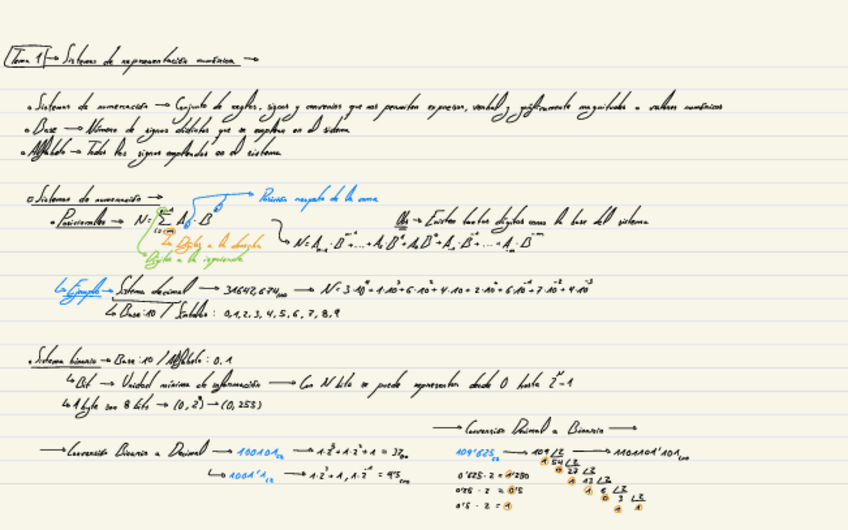 Tema 1 → Sistemas de representación numérica →
• Sistemas de numeración → Conjunto de reglas, signos y convenios que nos permiten expresar, verbal y gráficamente magnitudes o valores numéricos
• Base → Número de signos distintos que se emplean en el sistema
• Alfabeto → Todos los signos empleados en el sistema
• Sistemas de numeración →
Posición respecto de la coma
• Posicionales → N = Σ A · B
Obs → Existen tantos dígitos como la base del sistema
↳ Dígitos a la derecha
Dígitos a la izquierda
↳ Ejemplo → Sistema decimal → 31642,674 → N = 3·10⁴+1·10³+6·10²+4·10+2·10⁰+6·10⁻¹+7·10⁻²+4·10⁻³
↳ Base: 10 / Símbolos : 0,1,2,3,4,5,6,7,8,9
• Sistema binario → Base: 10 / Alfabeto: 0,1
↳ Bit → Unidad mínima de información → Con N bits se puede representar desde 0 hasta 2ᴺ-1
↳ 1 byte son 8 bits → (0, 2⁸) → (0, 255)
→ Conversión Decimal a Binario →
→ Conversión Binario a Decimal → 100101 → 1·2⁵+1·2²+1 = 37
109'625 → 109 → 1101101'101
↳ 1001'1
0'625·2 = 1'250
0'25·2 = 0'5
0'5·2 = 1